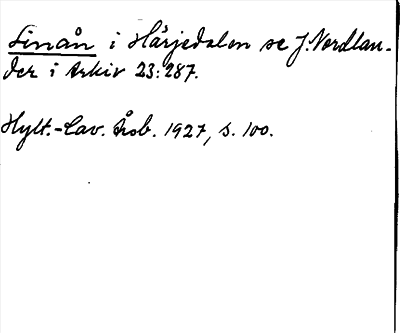 Linån i Härjedalen se J. Nordlan-
der i Arkiv 23:287.
Hylt.-Cav. Årsb. 1927, s. 100.